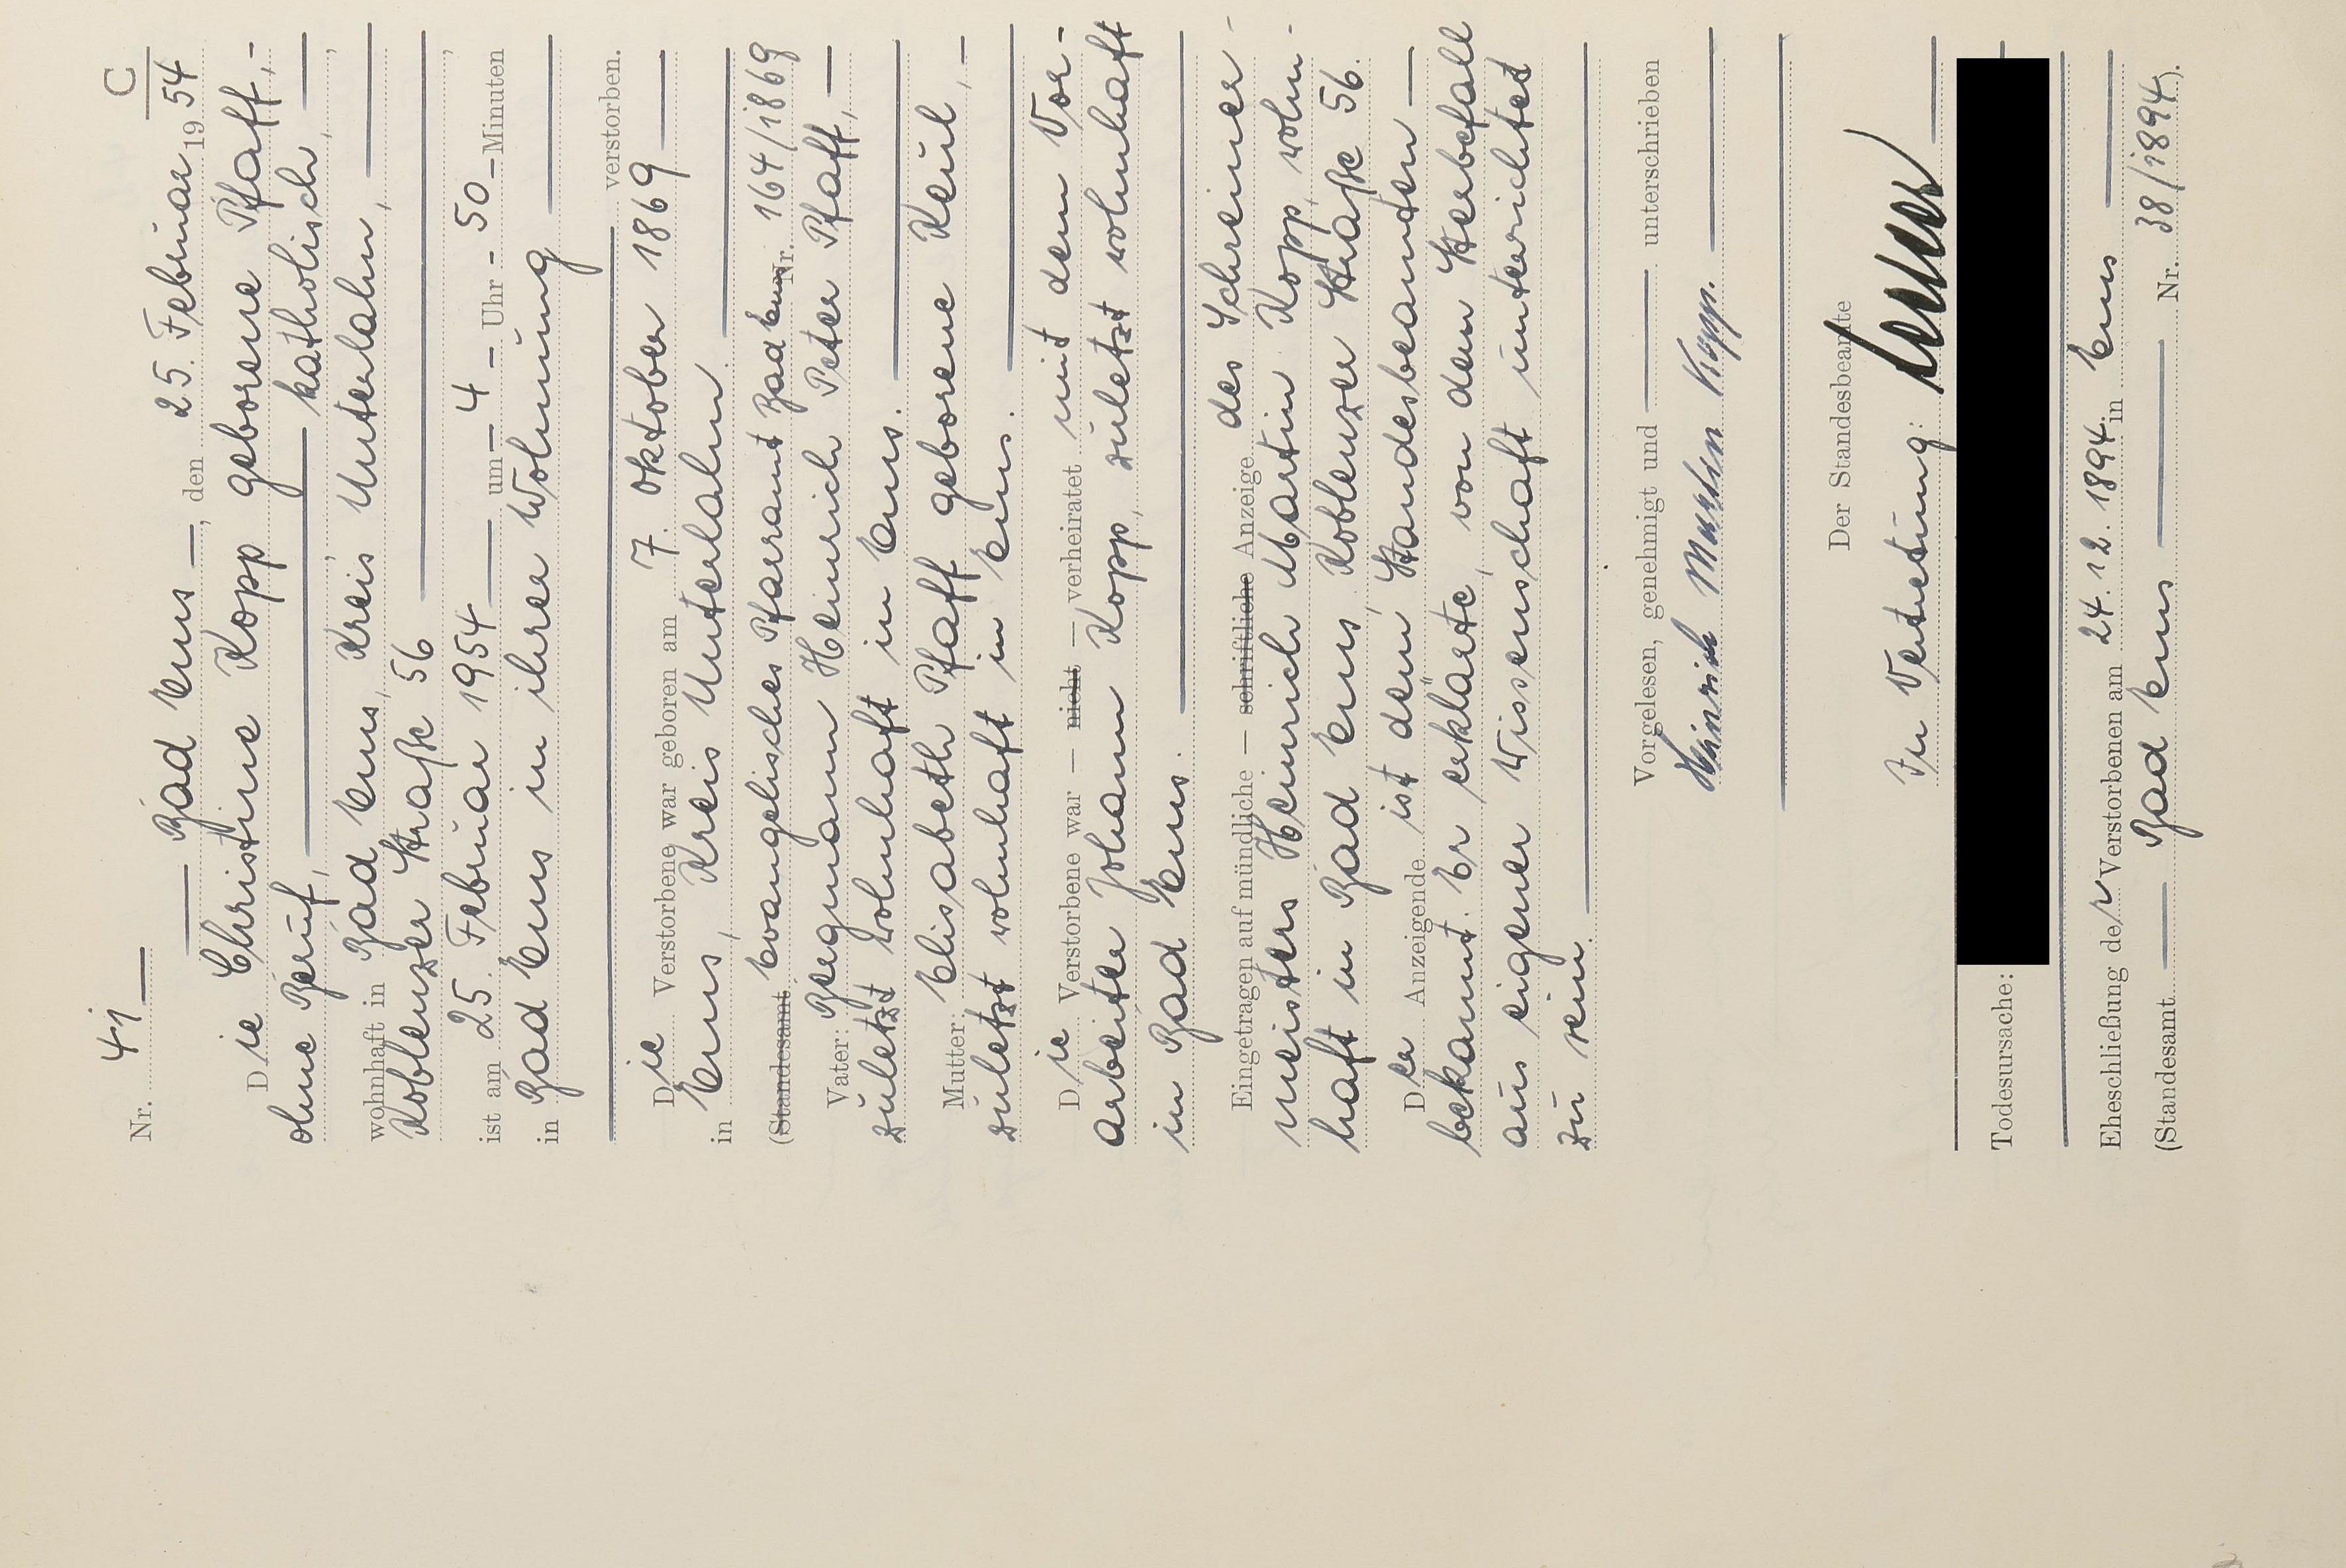 C
Nr. 41
Bad Ems, den 25. Februar 1954
Die Christine Kopp geborene Pfaff,-
ohne Beruf, katholisch,
wohnhaft in Bad Ems, Kreis Unterlahn,
Koblenzer Straße 56
ist am 25. Februar 1954 um 4 Uhr 50 Minuten
in Bad Ems in ihrer Wohnung
verstorben.
Die Verstorbene war geboren am 7. Oktober 1869
in Ems, Kreis Unterlahn.
(Standesamt, Evangelisches Pfarramt Bad Ems Nr. 164/1869
Vater: Bergmann Heinrich Peter Pfaff,
zuletzt wohnhaft in Ems.
Mutter: Elisabeth Pfaff geborene Keul,-
zuletzt wohnhaft in Ems.
Die Verstorbene war — nicht — verheiratet mit dem Vor-
arbeiter Johann Kopp, zuletzt wohnhaft
in Bad Ems.
Eingetragen auf mündliche — schriftliche Anzeige des Schreiner-
meisters Heinrich Martin Kopp, wohn-
haft in Bad Ems, Koblenzer Straße 56.
Der Anzeigende ist dem Standesbeamten
bekannt. Er erklärte, von dem Sterbefall
aus eigener Wissenschaft unterrichtet
zu sein.
Vorgelesen, genehmigt und unterschrieben
Heinrich Martin Kopp.
Der Standesbeamte
In Vertretung:
Todesursache:
Eheschließung der Verstorbenen am 24.12.1894 in Ems
(Standesamt Bad Ems Nr. 38/1894).